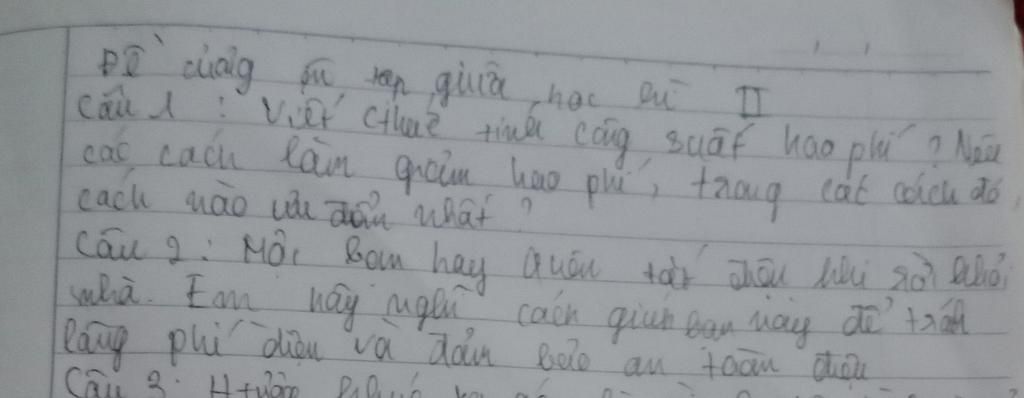 Đề cương ôn tập giữa học kì II
Câu 1 : Viết cthức tính công suất hao phí ? Nêu
các cách làm giảm hao phí, trong các cách đó
cách nào ưu nhất ?
Câu 2 : Một bạn hay quên tắt điện khi rời khỏi
nhà. Em hãy nghĩ cách giúp bạn này để tránh
lãng phí điện và đảm bảo an toàn điện
Câu 3 : H tượng